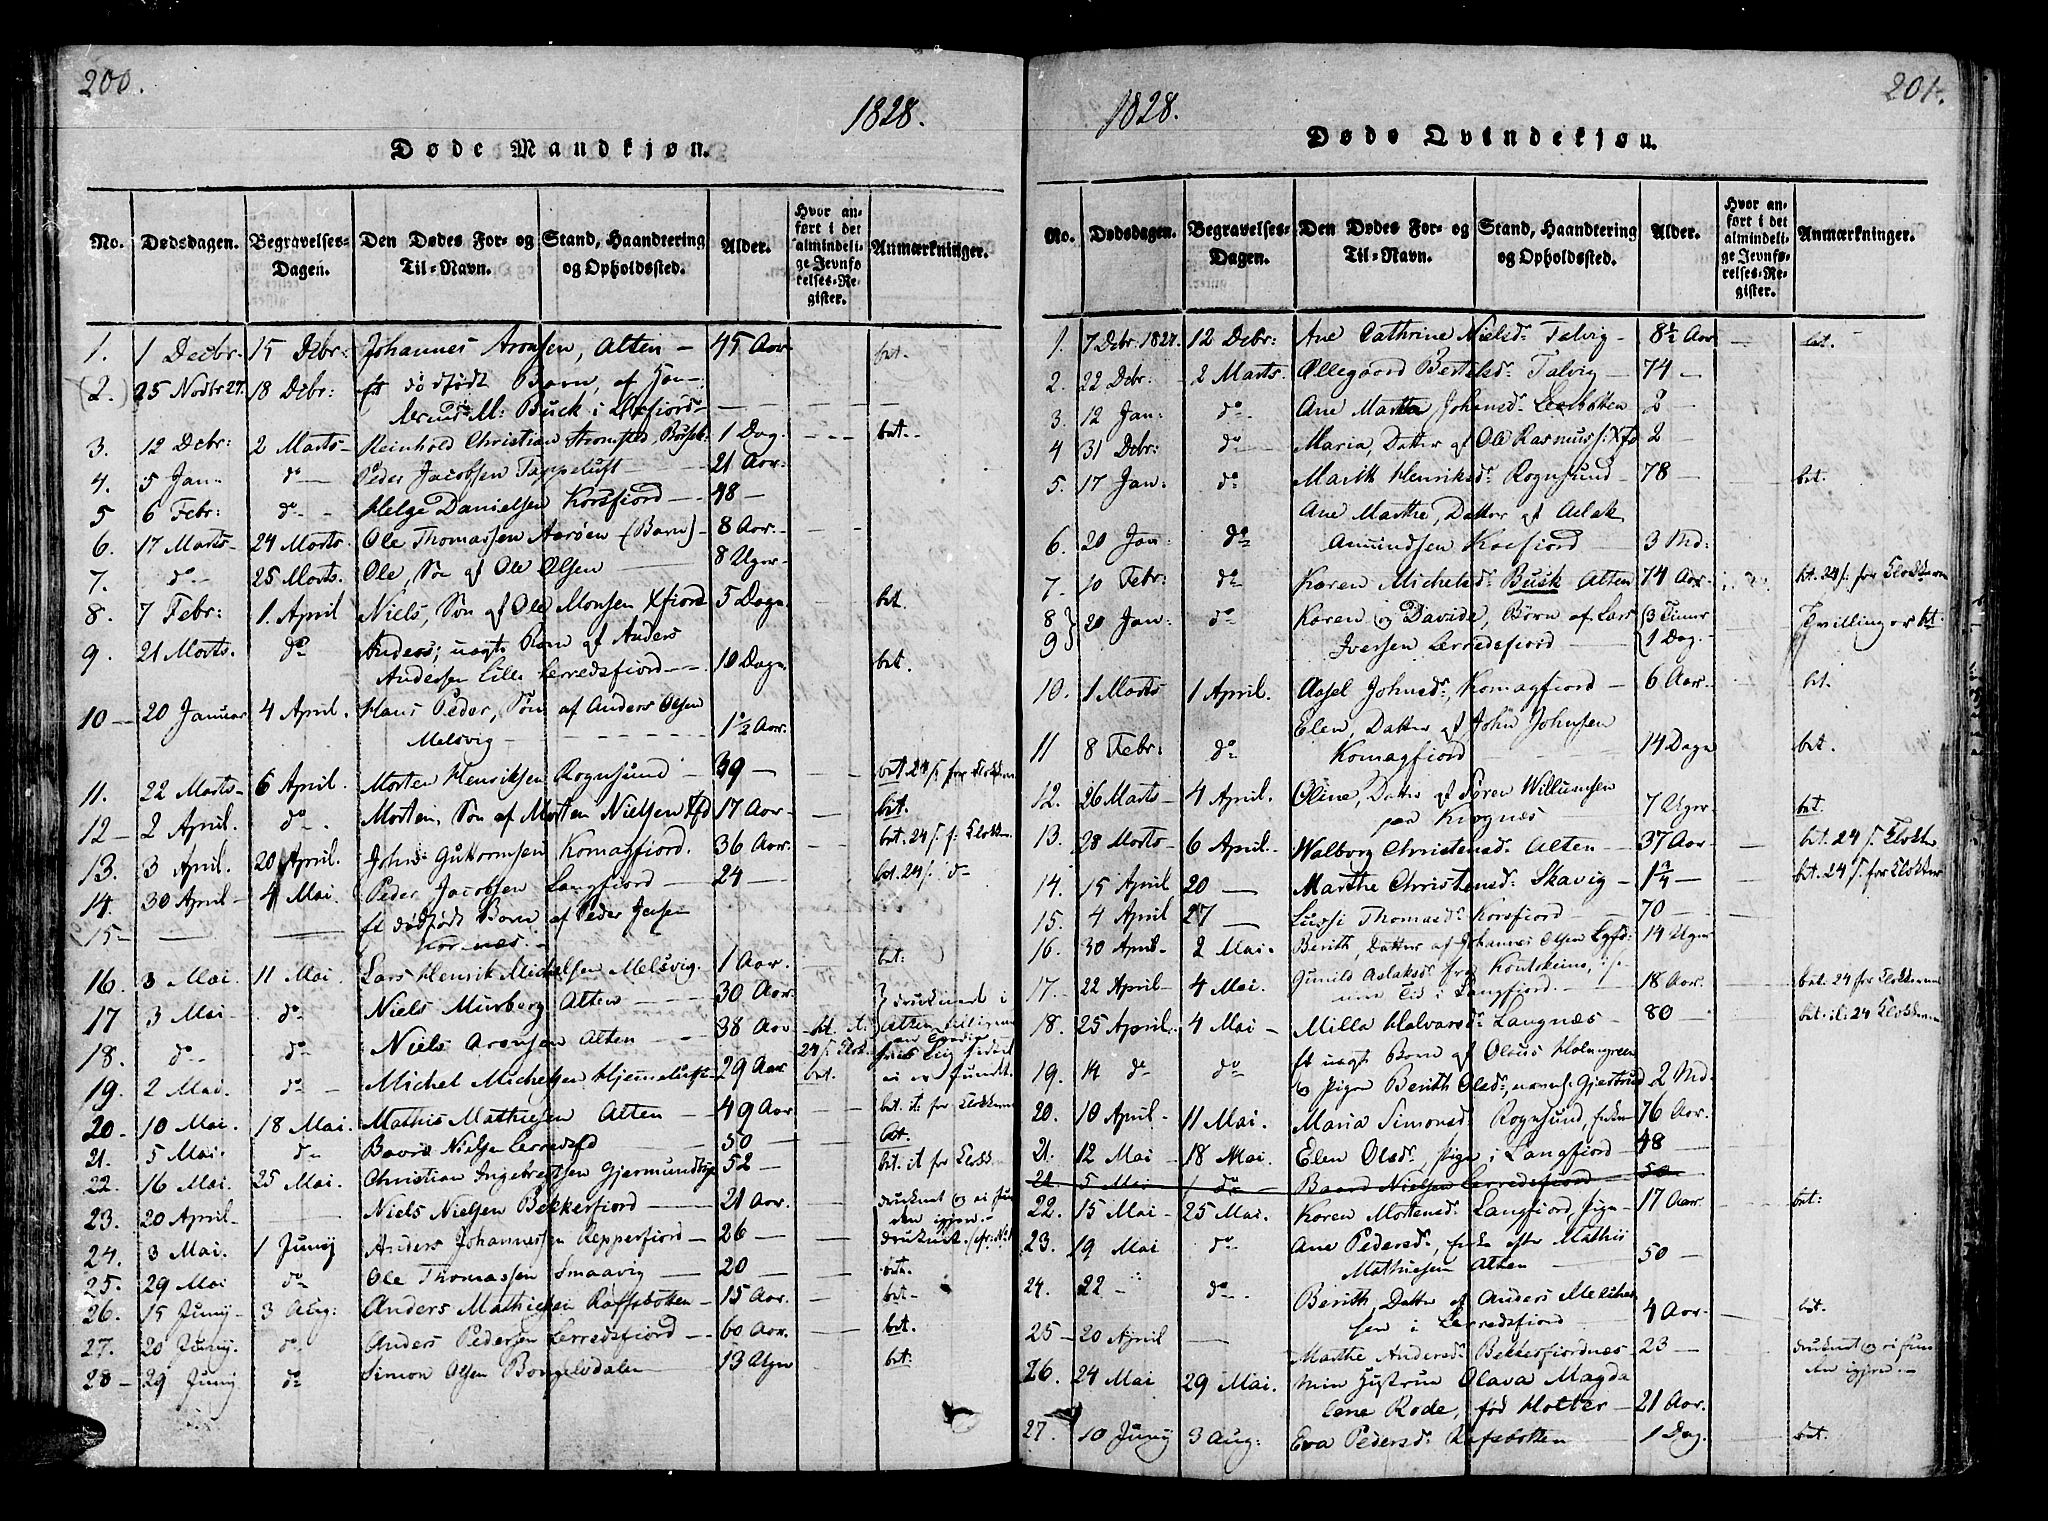 200.
1828.
Døde Mandkjøn.
No. Dødsdagen. Begravelses-Dagen. Den Dødes For- og Til-Navn. Stand, Haandtering og Opholdssted. Alder. Hvor anført i det almindelige Jevnførelses-Register. Anmærkninger.
1. 1 Decbr. 15 Dcbr: Johannes Aronsen, Alten - 45 Aar bet.
(2.) 25 Novbr 27. 18 Dcbr: Et dødfødt Barn, af Han-
M: Buck i Oxfiord -
3. 12 Dcbr: 2 Marts - Reinhold Christian Bosek: 1 Dag. bet.
4. 5 Jan - do Peder Jacobsen Tappeluft - 21 Aar:
5 6 Febr: do - Helge Danielsen Korsfiord - 48 -
6. 17 Marts - 24 Marts. Ole Thomassen Aarøen (Barn) - 8 Aar.
7. do - 25 Marts. Ole, Søn af Ole Olsen 8 Uger -
8. 7 Febr: 1. April Niels, Søn af Ole Monsen Xfiord 5 Dage bet.
9. 21 Marts. do Anders, uægte Barn af Anders
Andersen Lille Lerredsfiord - 10 Dage bet.
10 - 20 Januar 4 April. Hans Peder, Søn af Anders Olsen
Melsvig - 1½ Aar.
11. 22 Marts - 6 April. Morten Henriksen Rognsund - 39 - bet. 24 s. for Klokken
12 - 2 April. do - Morten, Søn af Morten Nielsen Xfd 17 Aar - bet.
13. 3 April. 20 April. John Guttormsen Komagfiord. 36 Aar bet. 24 s. f. Klokken
14. 30 April - 4 Mai. Peder Jacobsen Langfiord - 24 - bet. 24 s. do
15 - Et dødfødt Barn af Peder Jensen
Kornæs. -
16. 3 Mai. 11 Mai. Lars Henrik Michelsen Melsvig. 1 Aar. bet:
17 3 Mai - do - Niels Murberg Alten - 30 Aar. druknede i
18. do - do Niels Aronsen Alten - 38 Aar - bet. it.
24 s. Klok.
19. 2 Mai. do - Michel Michelsen Hjemmeluft - 29 Aar bet. ei er fundet.
20 - 10 Mai. 18 Mai. Mathis Mathisen Alten - 49 Aar bet. it. for Klokken
21. 5 Mai. do Baard Nielsen Lerredsfd 50 - bet.
22. 16 Mai. 25 Mai. Christian Ingebretsen 52 - bet. it for Klokk
23. 20 April - Niels Nielsen Bekkerfiord - 21 Aar. druknet og ei fun
den igjen. -
24. 3 Mai. 1 Junÿ Anders Johannessen Repperfiord - 26 - druknet.
25. 29 Mai do Ole Thomassen Smaavig - 20 - bet.
26. 15 Junÿ - 3 Aug: Anders Mathiesen Raffsbotten - 15 Aar. bet -
27. 20 Junÿ. do Anders Pedersen Lerredsfiord - 60 Aar. bet.
28 - 29 Junÿ do Simon Olsen 13 Uger bet.
201.
1828.
Døde Qvindekjøn.
No. Dødsdagen. Begravelses-Dagen. Den Dødes For- og Til-Navn. Stand, Haandtering og Opholdssted. Alder. Hvor anført i det almindelige Jevnførelses-Register. Anmærkninger.
1. 7 Dcbr: 1827. 12 Dcbr: Ane Cathrine Nielsd. Talvig - 8½ Aar - bet.
2. 22 Dcbr: - 2 Marts. Øllegaard Bertelsd. Talvig - 74 -
3. 12 Jan: do - Ane Martha Johansd. Leerbotten 2 -
4 31 Dcbr: do - Maria, Datter af Ole Rasmuss: Xfd 2 -
5. 17 Jan: do Marith Henriksd. Rognsund - 78 - bet.
Ane Marthe, Datter af Aslak
6. 20 Jan: do Amundsen Korsfiord 3 Md:
7. 10 Febr: do Karen Michelsd. Busk Alten 74 Aar - bet. 24 s. for Klokken
8 Karen og Davide, Børn af Lars 3 Timer
9 } 20 Jan: do Iversen Lerredsfiord 1 Dag. - Tvillinger bt.
10. 1 Marts 1 April. Aasel Johnsd. Komagfiord - 6 Aar. bet.
Elen, Datter af John Johnsen
11 8 Febr: do Komagfiord 14 Dage bet.
12. 26 Marts - 4 April. Oline, Datter af Søren Willumsen
paa Krognæs - 7 Uger bet.
13. 28 Marts - 6 April - Walborg Christensd. Alten - 37 Aar - bet. 24 s. Klokken
14. 15 April 20 - Marthe Christensd. Skavig - 1¾ - bet. 24 s. for Klokken
15. 4 April 27 - Lussi Thomasd. Korsfiord - 70 -
16. 30 April - 2 Mai - Berith, Datter af Johannes Olsen Lgfd: 14 Uger
17. 22 April - 4 Mai. Gunild Aslaksd. fra Koutokeino,
Tid i Langfiord. - 18 Aar. bet. 24 for Klokken
18. 25 April. 4 Mai - Milla Halvarsd. Langnæs - 80 - bet. it: 24 Klokken
Et uægte Barn af Olaus Holmgreen
19. 14 do do og Pigen Berith Olsd. navnl. Gjertrud 2 Md.
20. 10 April - 11 Mai. Maria Simonsd. Rognsund, Enke 76 Aar.
21. 12 Mai - 18 Mai. Elen Olsd. Pige i Langfiord - 48 -
21 5 Mai do Baard Nielsen Lerredsfiord 50
22. 15 Mai - 25 Mai. Karen Mortensd. Langfiord, Pige - 17 Aar. bet:
23. 19 Mai do - Ane Pedersd., Enke efter Mathis
Mathiesen Alten - 50 -
24. 22 - do - Berith, Datter af Anders Michel
sen i Lerredsfiord - 4 Aar - bet.
25 - 20 April - Marthe Andersd. Bekkerfiordnæs 23 - druknet og ei fun
den igjen. -
26. 24 Mai 29 Mai. Min Hustrue Olava Magda
lene Rode, fød Holter - 21 Aar.
27. 10 Junÿ 3 Aug: Eva Pedersd. Rafsbotten 1 Dag. bet.